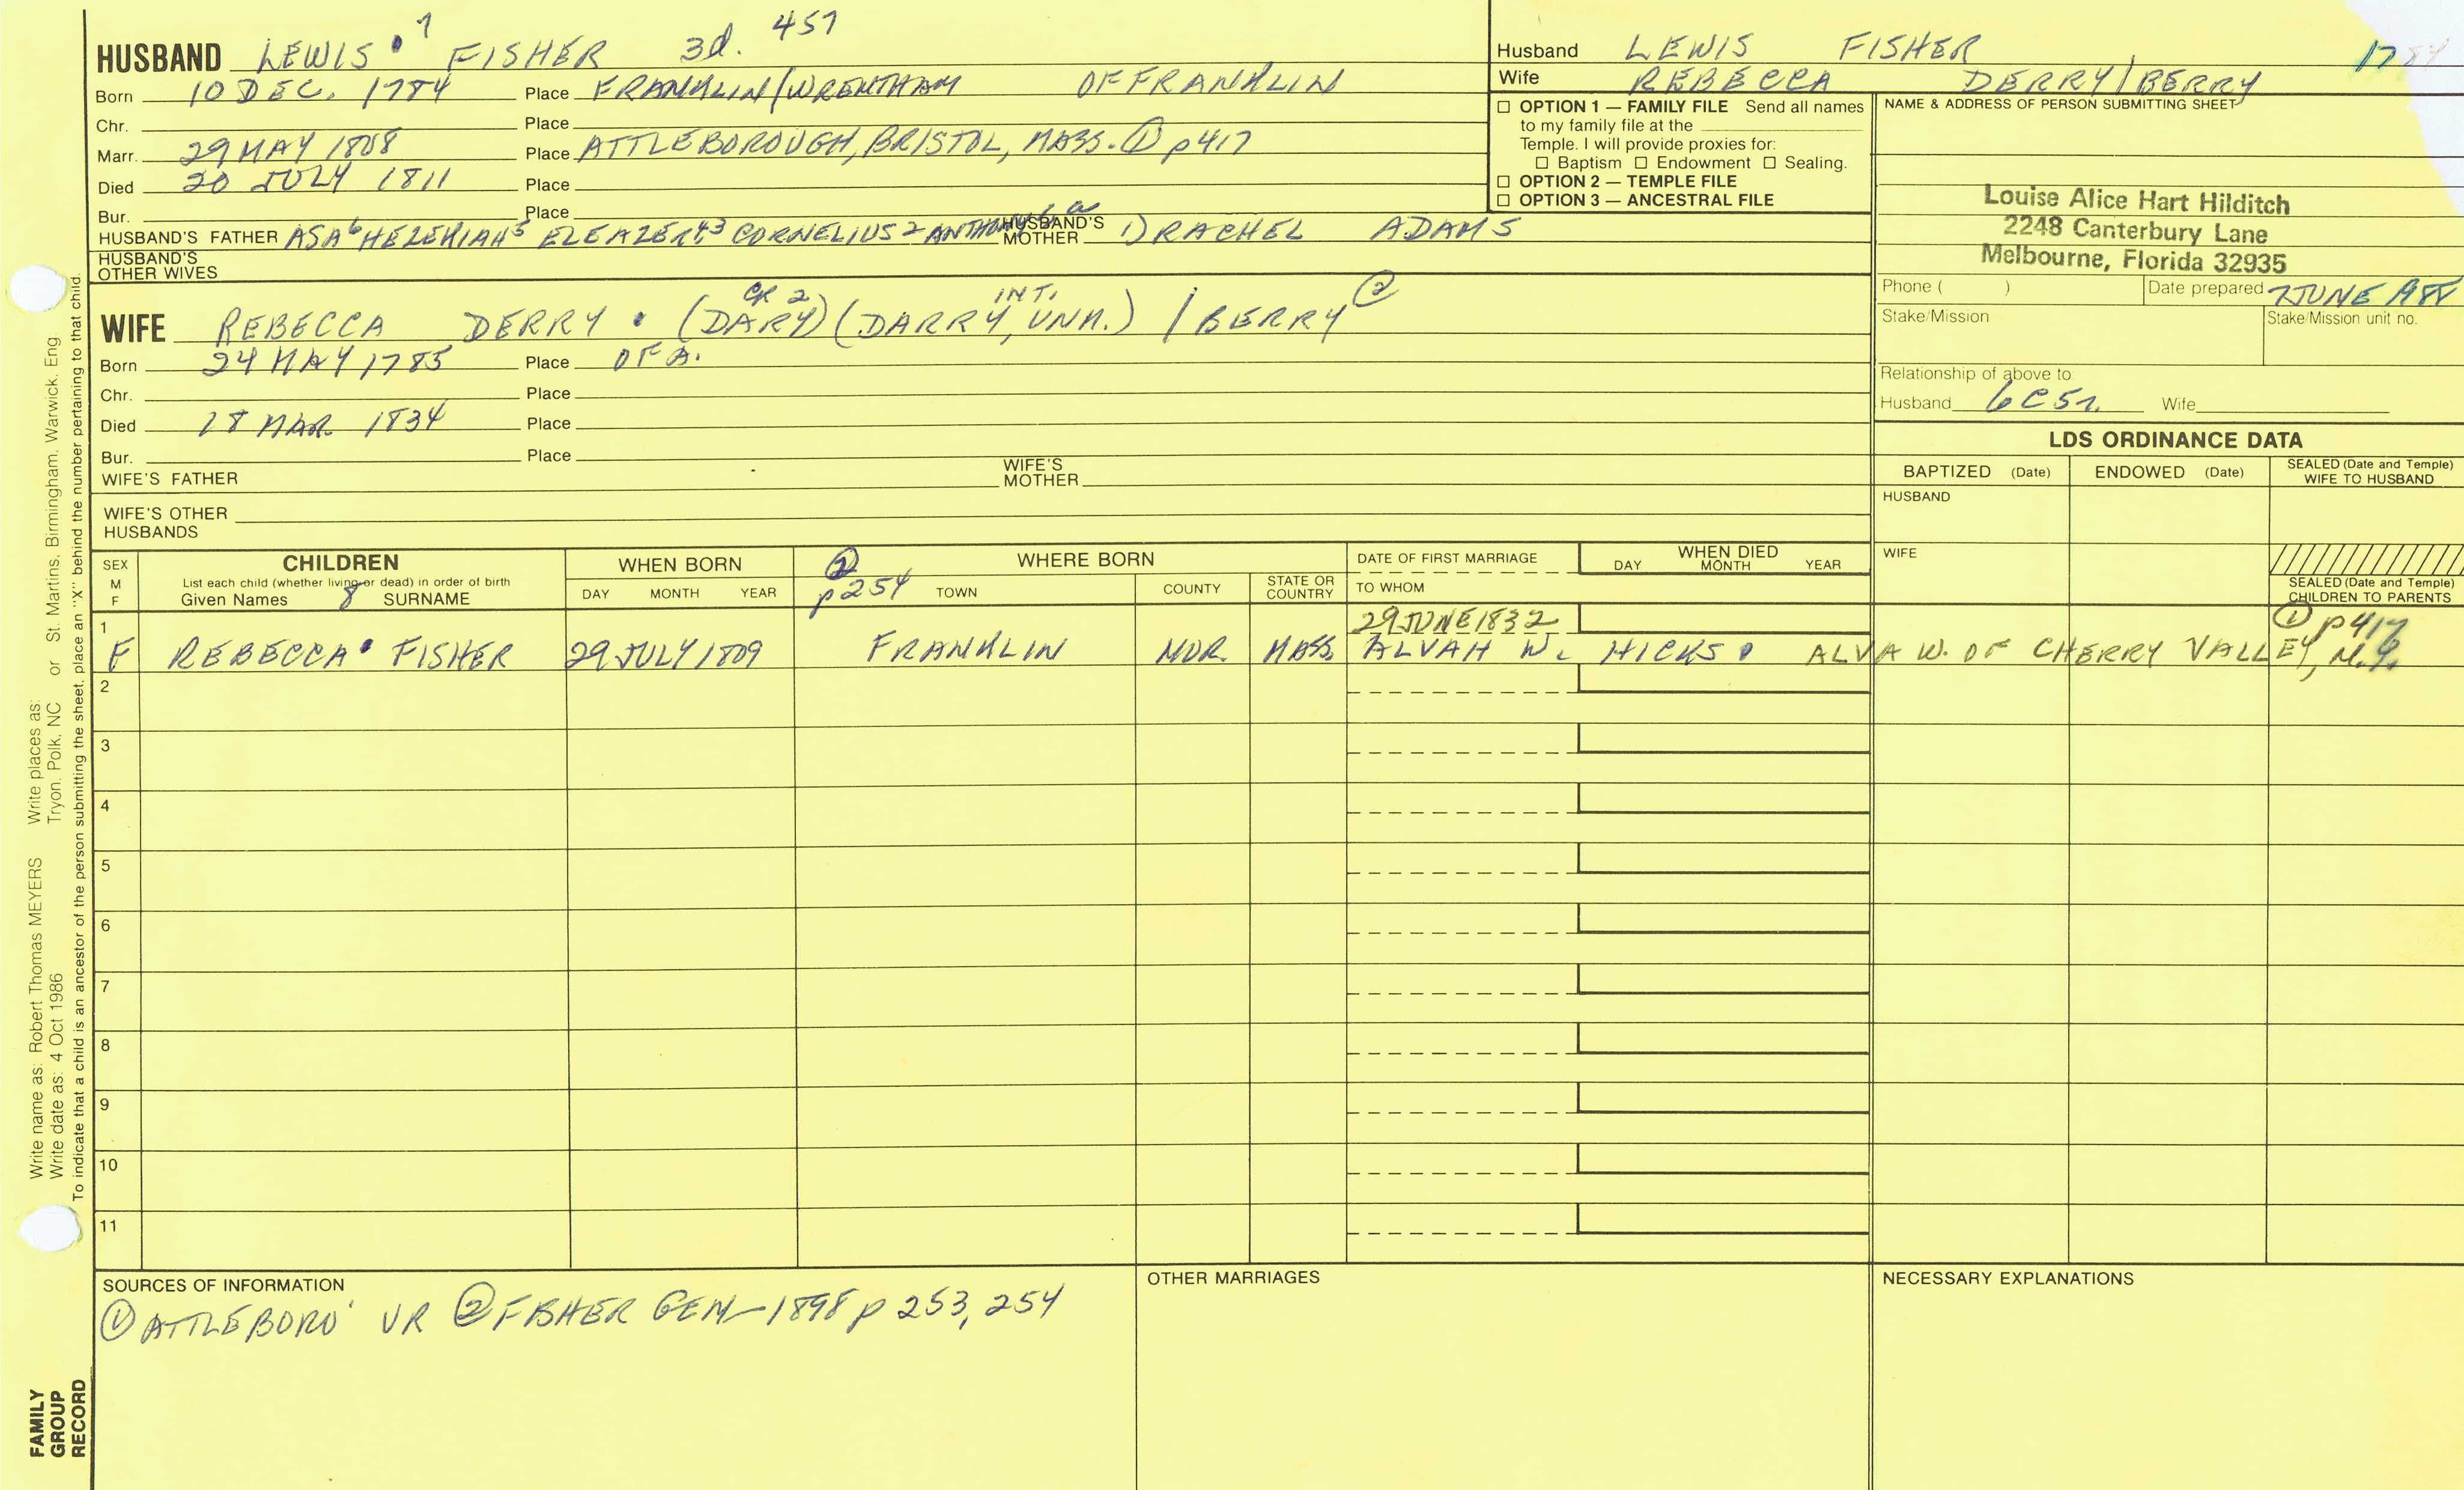 HUSBAND LEWIS 7 FISHER 3d. 457
Born 10 DEC. 1784 Place FRANKLIN/WRENTHAM OF FRANKLIN
Chr. Place
Marr. 29 MAY 1808 Place ATTLEBOROUGH, BRISTOL, MASS. ① p 417
Died 20 JULY 1811 Place
Bur. Place
HUSBAND'S FATHER ASA 6 HEZEKIAH 5 ELEAZER 4,3 CORNELIUS 2 ANTHONY HUSBAND'S MOTHER 1) RACHEL ADAMS
HUSBAND'S
OTHER WIVES
Husband LEWIS FISHER 1784
Wife REBECCA DERRY/BERRY
☐ OPTION 1 — FAMILY FILE Send all names
to my family file at the
Temple. I will provide proxies for:
☐ Baptism ☐ Endowment ☐ Sealing.
☐ OPTION 2 — TEMPLE FILE
☐ OPTION 3 — ANCESTRAL FILE
NAME & ADDRESS OF PERSON SUBMITTING SHEET
Louise Alice Hart Hilditch
2248 Canterbury Lane
Melbourne, Florida 32935
Phone ( ) Date prepared 7 JUNE 1988
Stake/Mission Stake/Mission unit no.
Relationship of above to
Husband 6C5r. Wife
WIFE REBECCA DERRY (DARY) GR 2 (DARRY, INT. UNK.) / BERRY ②
Born 24 MAY 1785 Place OF A.
Chr. Place
Died 18 MAR. 1834 Place
Bur. Place
WIFE'S FATHER WIFE'S MOTHER
WIFE'S OTHER
HUSBANDS
LDS ORDINANCE DATA
BAPTIZED (Date) ENDOWED (Date) SEALED (Date and Temple) WIFE TO HUSBAND
HUSBAND
WIFE
SEALED (Date and Temple)
CHILDREN TO PARENTS
SEX
M
F
CHILDREN
List each child (whether living or dead) in order of birth
Given Names 8 SURNAME
WHEN BORN
DAY MONTH YEAR
② p 254
WHERE BORN
TOWN COUNTY STATE OR COUNTRY
DATE OF FIRST MARRIAGE
TO WHOM
WHEN DIED
DAY MONTH YEAR
1 29 JUNE 1832 ① p 417
F REBECCA FISHER 29 JULY 1809 FRANKLIN NOR. MASS. ALVAH W. HICKS ALVA W. OF CHERRY VALLEY, N.Y.
2
3
4
5
6
7
8
9
10
11
SOURCES OF INFORMATION
① ATTLEBORO' VR ② FISHER GEN—1898 p 253, 254
OTHER MARRIAGES
NECESSARY EXPLANATIONS
Write name as: Robert Thomas MEYERS Write places as:
Write date as: 4 Oct 1986 Tryon, Polk, NC or St. Martins, Birmingham, Warwick, Eng
To indicate that a child is an ancestor of the person submitting the sheet, place an "X" behind the number pertaining to that child.
FAMILY
GROUP
RECORD